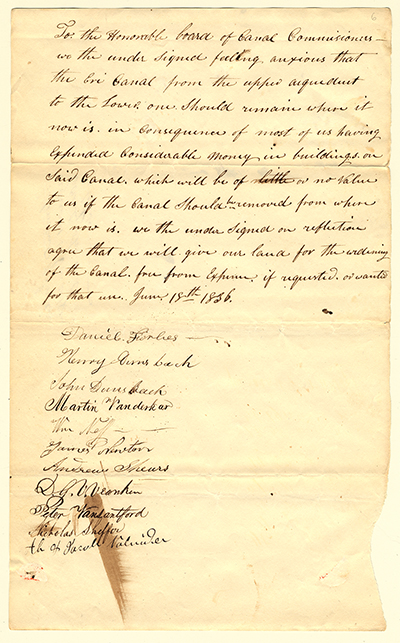 6
To. the Honorable board of Canal Commisioners –
we the under Signed feeling anxious that
the Eri Canal from the upper aqueduct
to the Lower one Should remain where it
now is. in Consequence of most of us having
Expended Considerable money in buildings on
Said Canal. which will be of little or no Value
to us if the Canal Should be removed from where
it now is. we the under Signed on reflection
agree that we will give our land for the widening
of the Canal. free from Expense. if requested. or wanted
for that use. June 18th 1836.
Daniel Forbes
Henry Dunsbach
John Dunsbach
Martin Vanderkar
Wm Ness
James Newton
Andrew Shears
D. G. V.
Peter Vansantford
Nicholas Sheffer
Jacob